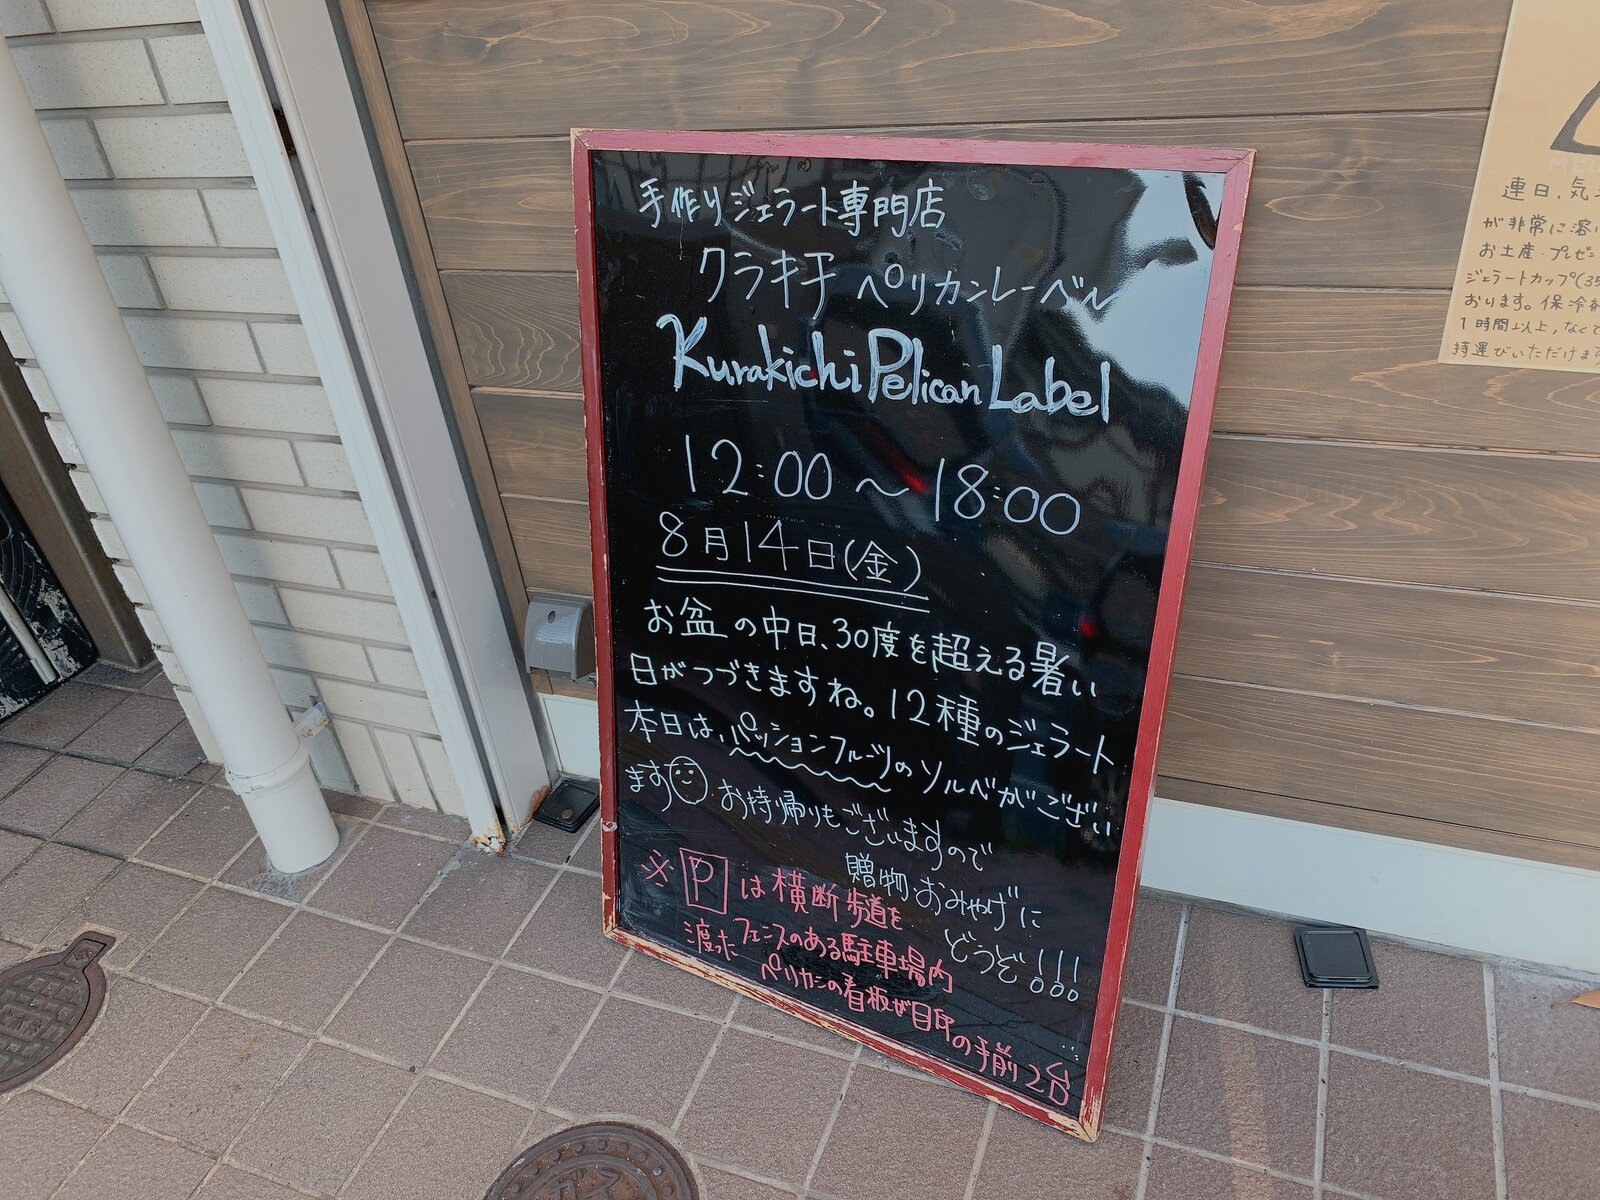 手作りジェラート専門店
クラキチ ペリカンレーベル
Kurakichi Pelican Label
12:00 ～ 18:00
8月14日(金)
お盆の中日、30度を超える暑い
日がつづきますね。12種のジェラート
本日は、パッションフルーツのソルベがござい
ます お持帰りもございますので
贈物・おみやげに
どうぞ!!!
※Pは横断歩道を
渡ったフェンスのある駐車場内
ペリカンの看板が目印の手前2台
連日、気
が非常に溶
お土産・プレゼ
ジェラートカップ(35
おります。保冷
1時間以上、なくて
持運びいただけます